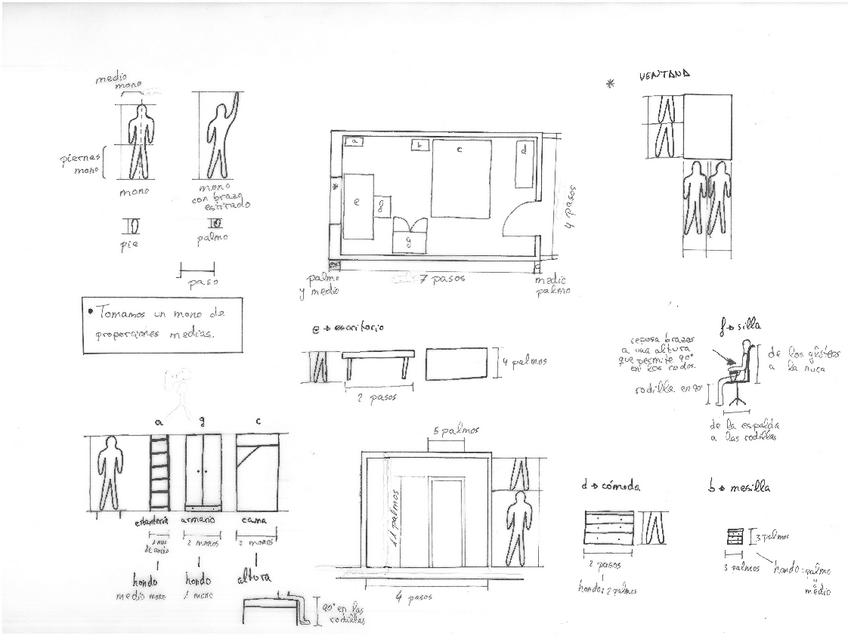 medio
mono
piernas
mono
mono
mono
con brazo
estirado
pie
palmo
paso
• Tomamos un mono de
proporciones medias.
a
b
c
d
e
g
*
4 pasos
palmo
y medio
7 pasos
medio
palmo
* VENTANA
e → escritorio
4 palmos
2 pasos
f → silla
reposa brazos
a una altura
que permite 90°
en los codos.
rodilla en 90°
de los glúteos
a la nuca
de la espalda
a las rodillas
a
g
c
estantería
armario
cama
2 monos
hondo
medio mono
hondo
1 mono
altura
90° en las
rodillas
5 palmos
11 palmos
4 pasos
d → cómoda
2 pasos
hondo: 2 palmos
b → mesilla
3 palmos
3 palmos
hondo: palmo
y
medio